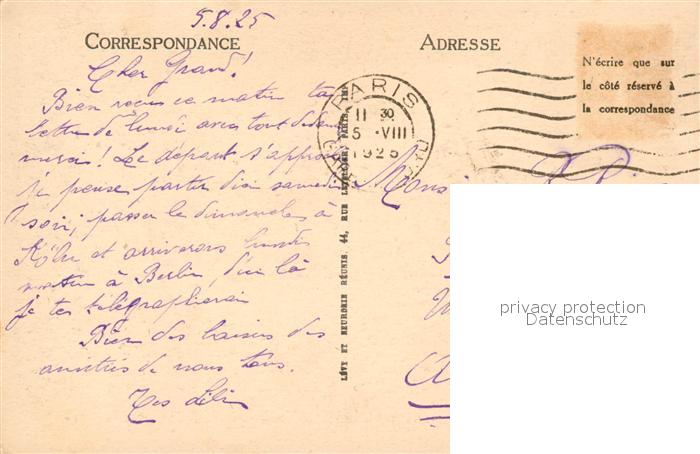 5.8.25
CORRESPONDANCE
ADRESSE
Cher Grand!
Bien reçu ce matin ta
lettre de lundi avec tout dedans
merci! Le départ s'approche
je pense partir d'ici samedi
soir, passer le dimanche à
Köln et arriverai lundi
matin à Berlin, d'ici là
je te télégraphierai
Bien des baisers des
amitiés de nous tous.
Tes
PARIS
11 30
5 VIII
1925
N'écrire que sur
le côté réservé à
la correspondance
LÉVY ET NEURDEIN RÉUNIS, 44, RUE LETELLIER, PARIS, IMP.
privacy protection
Datenschutz